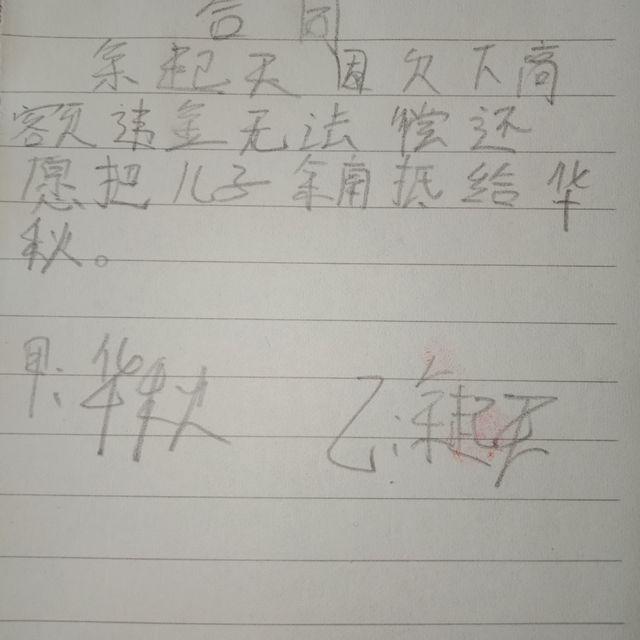 合同
余起天因欠下高
额违金无法偿还
愿把儿子余南抵给华
秋。
甲:华秋 乙:余起天